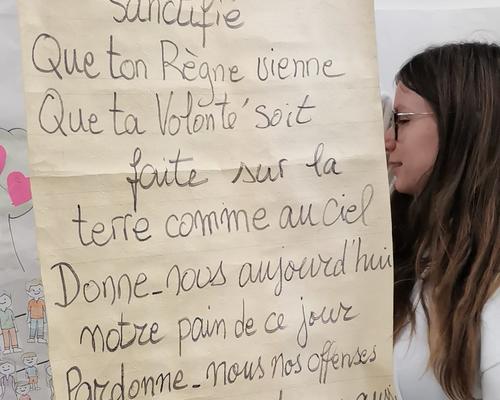 sanctifié
Que ton Règne vienne
Que ta Volonté soit
faite sur la
terre comme au ciel
Donne-nous aujourd'hui
notre pain de ce jour
Pardonne-nous nos offenses